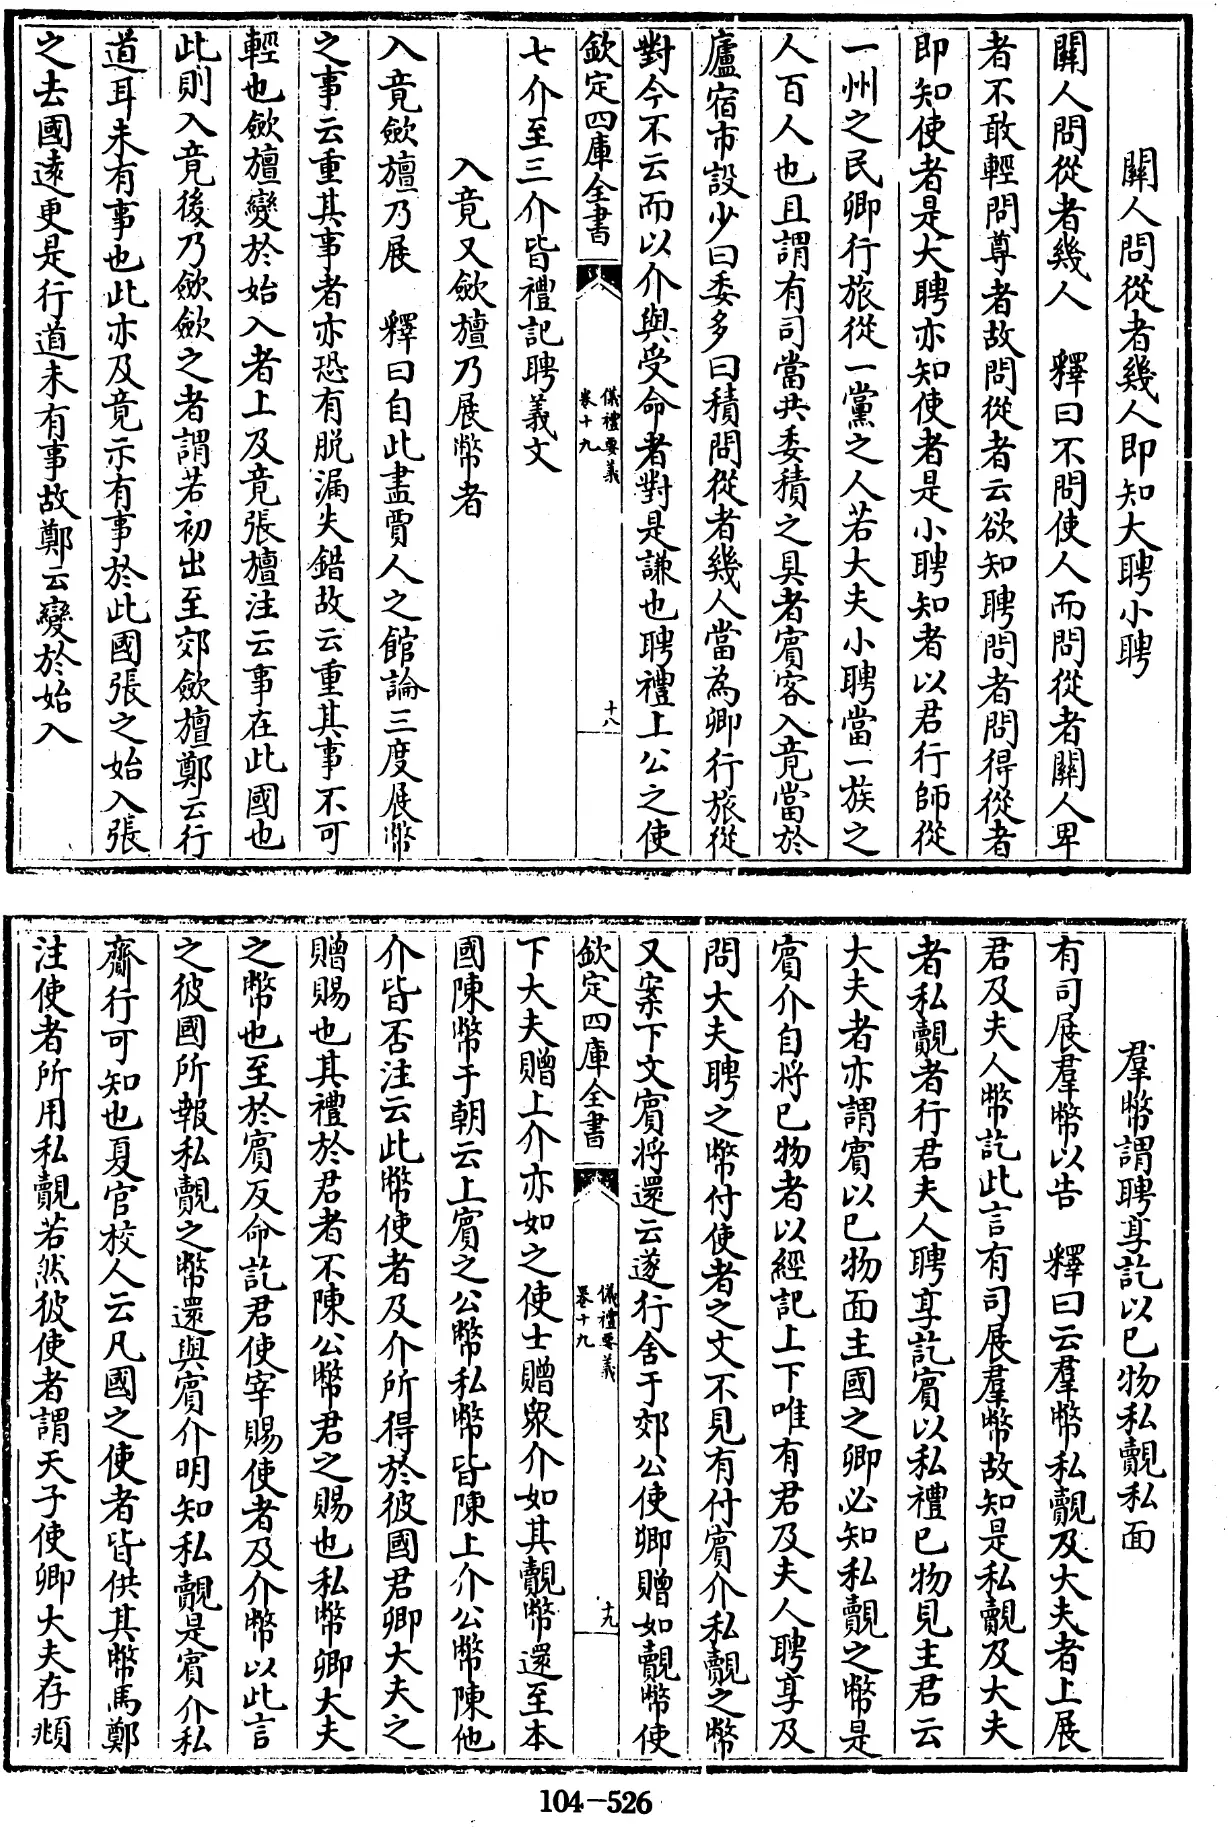 關人問從者幾人即知大聘小聘
關人問從者幾人　釋曰不問使人而問從者關人卑
者不敢輕問尊者故問從者云欲知聘問者問得從者
即知使者是大聘亦知使者是小聘知者以君行師從
一州之民卿行旅從一黨之人若大夫小聘當一族之
人百人也且謂有司當共委積之具者賓客入竟當於
廬宿市設少曰委多曰積問從者幾人當為卿行旅從
對今不云而以介與受命者對是謙也聘禮上公之使
欽定四庫全書
儀禮要義
卷十九
十八
七介至三介皆禮記聘義文
入竟又斂旜乃展幣者
入竟斂旜乃展　釋曰自此盡賈人之館論三度展幣
之事云重其事者亦恐有脱漏失錯故云重其事不可
輕也斂旜變於始入者上及竟張旜注云事在此國也
此則入竟後乃斂斂之者謂若初出至郊斂旜鄭云行
道耳未有事也此亦及竟示有事於此國張之始入張
之去國遠更是行道未有事故鄭云變於始入
羣幣謂聘享訖以已物私覿私面
有司展羣幣以告　釋曰云羣幣私覿及大夫者上展
君及夫人幣訖此言有司展羣幣故知是私覿及大夫
者私覿者行君夫人聘享訖賓以私禮已物見主君云
大夫者亦謂賓以已物面主國之卿必知私覿之幣是
賓介自將已物者以經記上下唯有君及夫人聘享及
問大夫聘之幣付使者之文不見有付賓介私覿之幣
又案下文賓將還云遂行舍于郊公使卿贈如覿幣使
欽定四庫全書
儀禮要義
卷十九
十九
下大夫贈上介亦如之使士贈衆介如其覿幣還至本
國陳幣于朝云上賓之公幣私幣皆陳上介公幣陳他
介皆否注云此幣使者及介所得於彼國君卿大夫之
贈賜也其禮於君者不陳公幣君之賜也私幣卿大夫
之幣也至於賓反命訖君使宰賜使者及介幣以此言
之彼國所報私覿之幣還與賓介明知私覿是賓介私
齎行可知也夏官校人云凡國之使者皆供其幣馬鄭
注使者所用私覿若然彼使者謂天子使卿大夫存頫
104—526